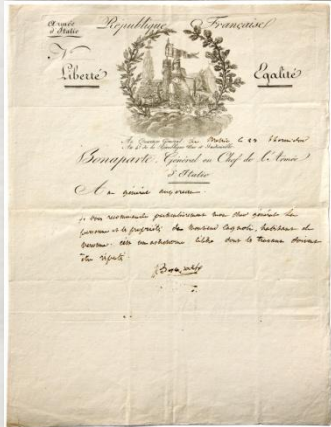 Armée
d'Italie
République Française
Liberté
Egalité
Au Quartier Général de le 22 Thermidor
An 4 de la République Une et Indivisible
Bonaparte, Général en Chef de l'Armée
d'Italie
Au général augereau
je vous recommende particulierement mon cher général la
personne et les propriétés du Monsieur Cagnoli, habitant de
Verone. celebre dont les travaux doivent
être
Bonaparte